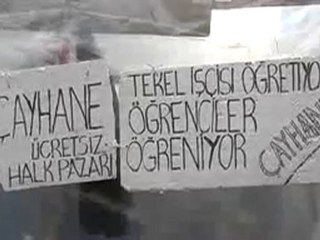 ÇAYHANE
ÜCRETSİZ
HALK PAZARI
TEKEL İŞÇİSİ ÖĞRETİYO
ÖĞRENCİLER
ÖĞRENİYOR
ÇAYHANE